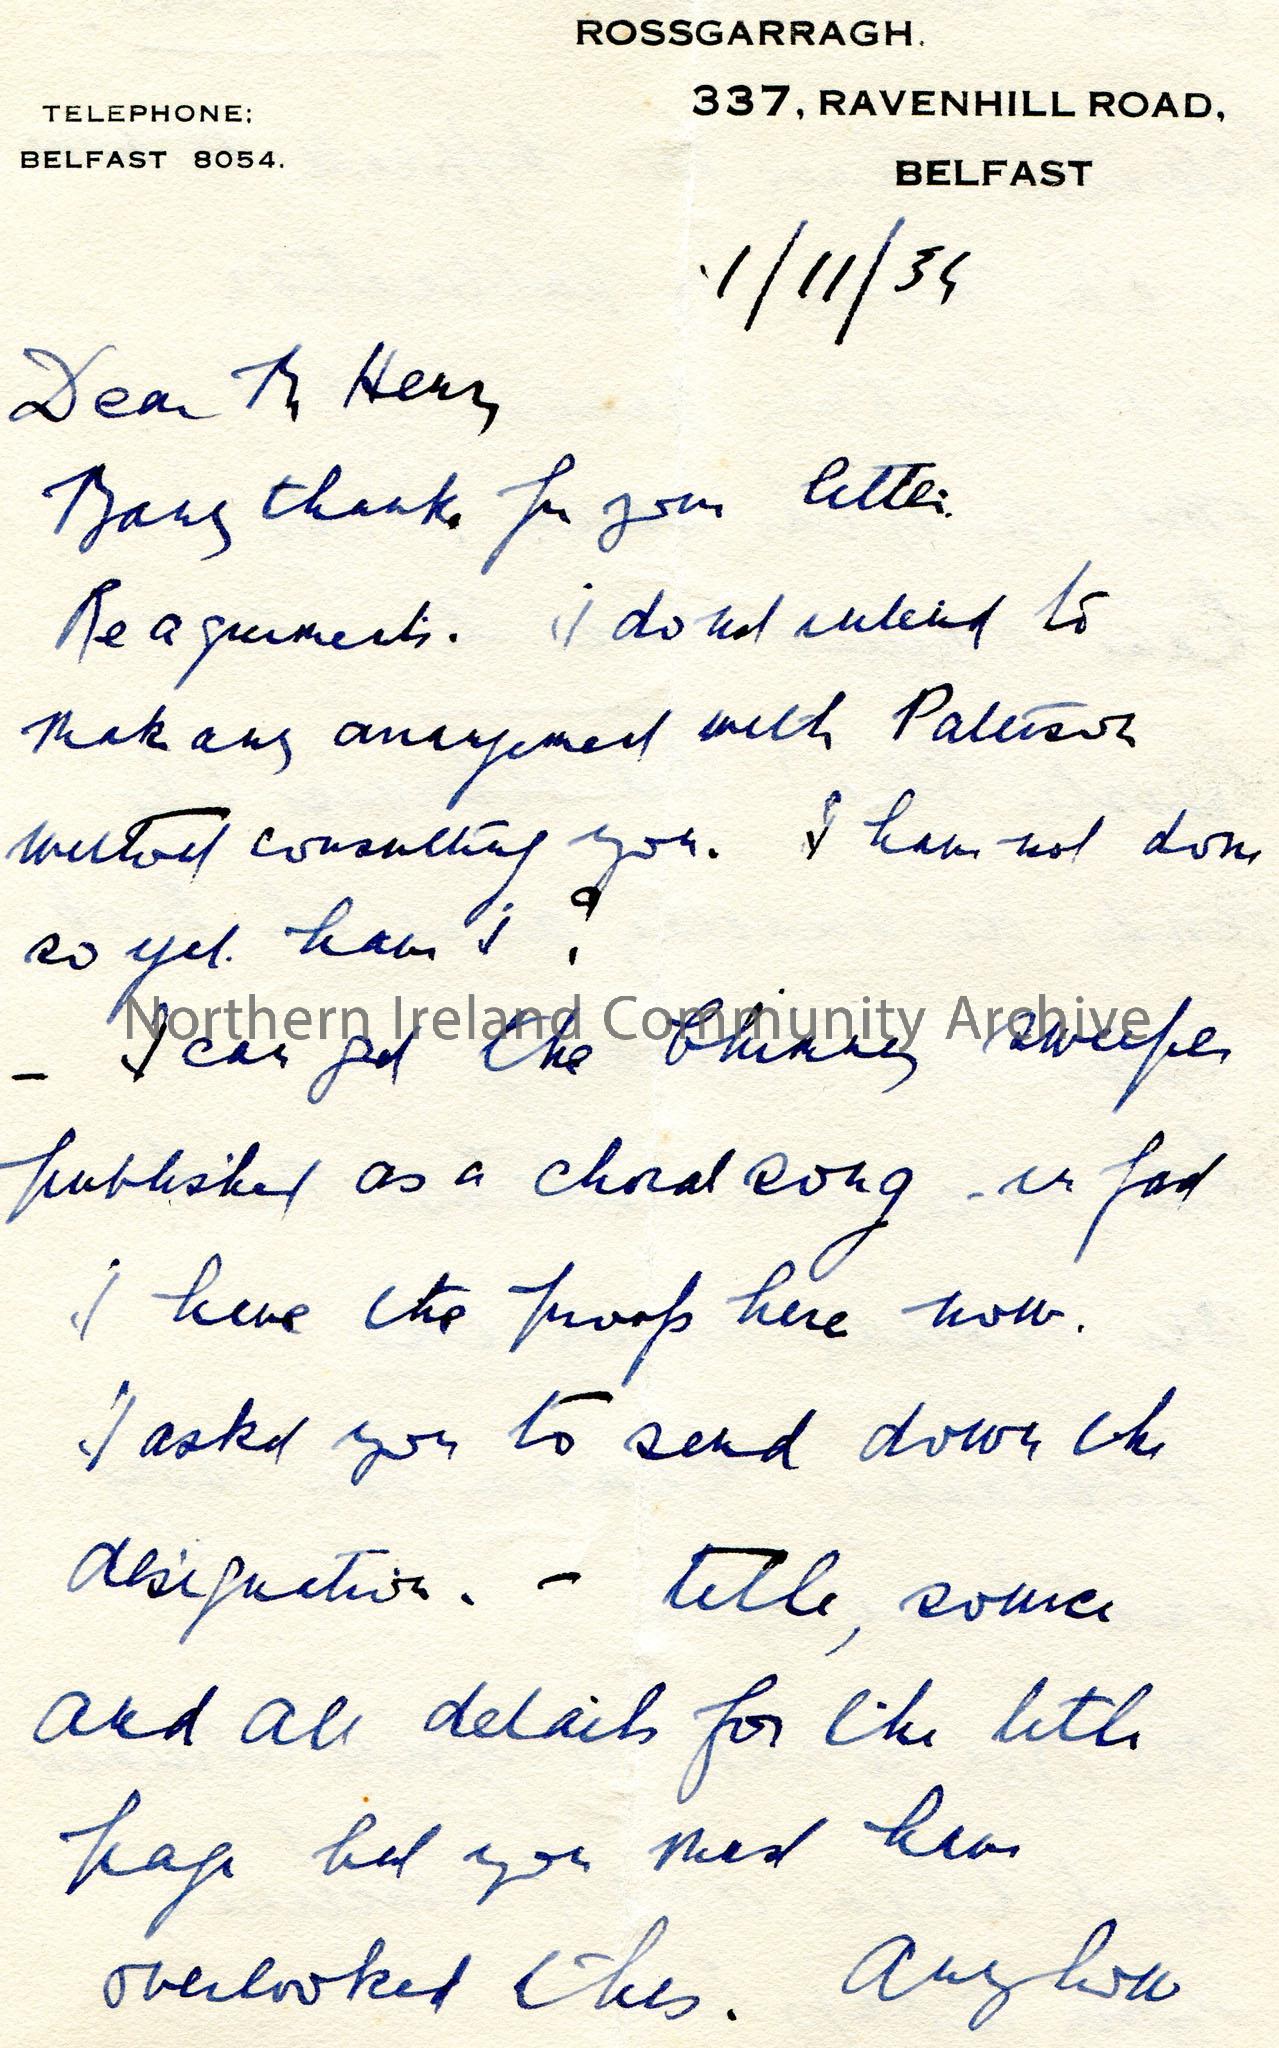 ROSSGARRAGH.
TELEPHONE:
BELFAST 8054.
337, RAVENHILL ROAD,
BELFAST
1/11/34
Dear Mr Henry
Many thanks for your letter.
Re agreements. I do not intend to
make any arrangement with Paterson
without consulting you. I have not done
so yet. have I?
Northern Ireland Community Archive
- I can get the Chimney sweeper
published as a choral song - in fact
I have the proofs here now.
I asked you to send down the
designation. - title, source
and all details for the title
page but you must have
overlooked this. Anyhow